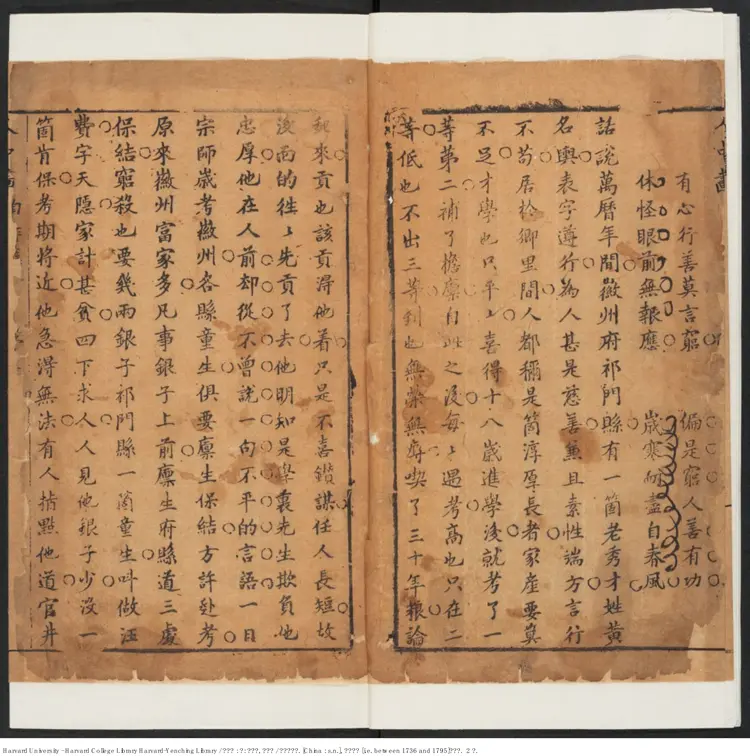 有心行善莫言窮 偏是窮人善有功
休怪眼前無報應 歲寒耐盡自春風
話說萬曆年間徽州府祁門縣有一箇老秀才姓黃
名輿表字遵行為人甚是慈善兼且素性端方言行
不苟居於鄉里間人都稱是箇淳厚長者家產要莫
不足才學也只平〻喜得十八歲進學後就考了一
等第二補了增廩自此之後每〻遇考高也只在二
等低也不出三等到也無榮無辱喫了三十年粮論
起來貢也該貢得他着只是不喜鑽謀任人長短故
後面的徃〻先貢了去他明知是學裏先生欺負他
忠厚他在人前却從不曾說一句不平的言語一日
宗師歲考徽州各縣童生俱要廩生保結方許赴考
原來徽州富家多凡事銀子上前廩生府縣道三處
保結窮殺也要幾兩銀子祁門縣一箇童生呌做汪
費字天隱家計甚貧四下求人人見他銀子少沒一
箇肯保考期將近他急得無法有人指點他道官井
Harvard University - Harvard College Library Harvard-Yenching Library / ??? : ?: ???, ??? / ?????. [China : s.n.], ???? [i.e. between 1736 and 1795]???. 2 ?.